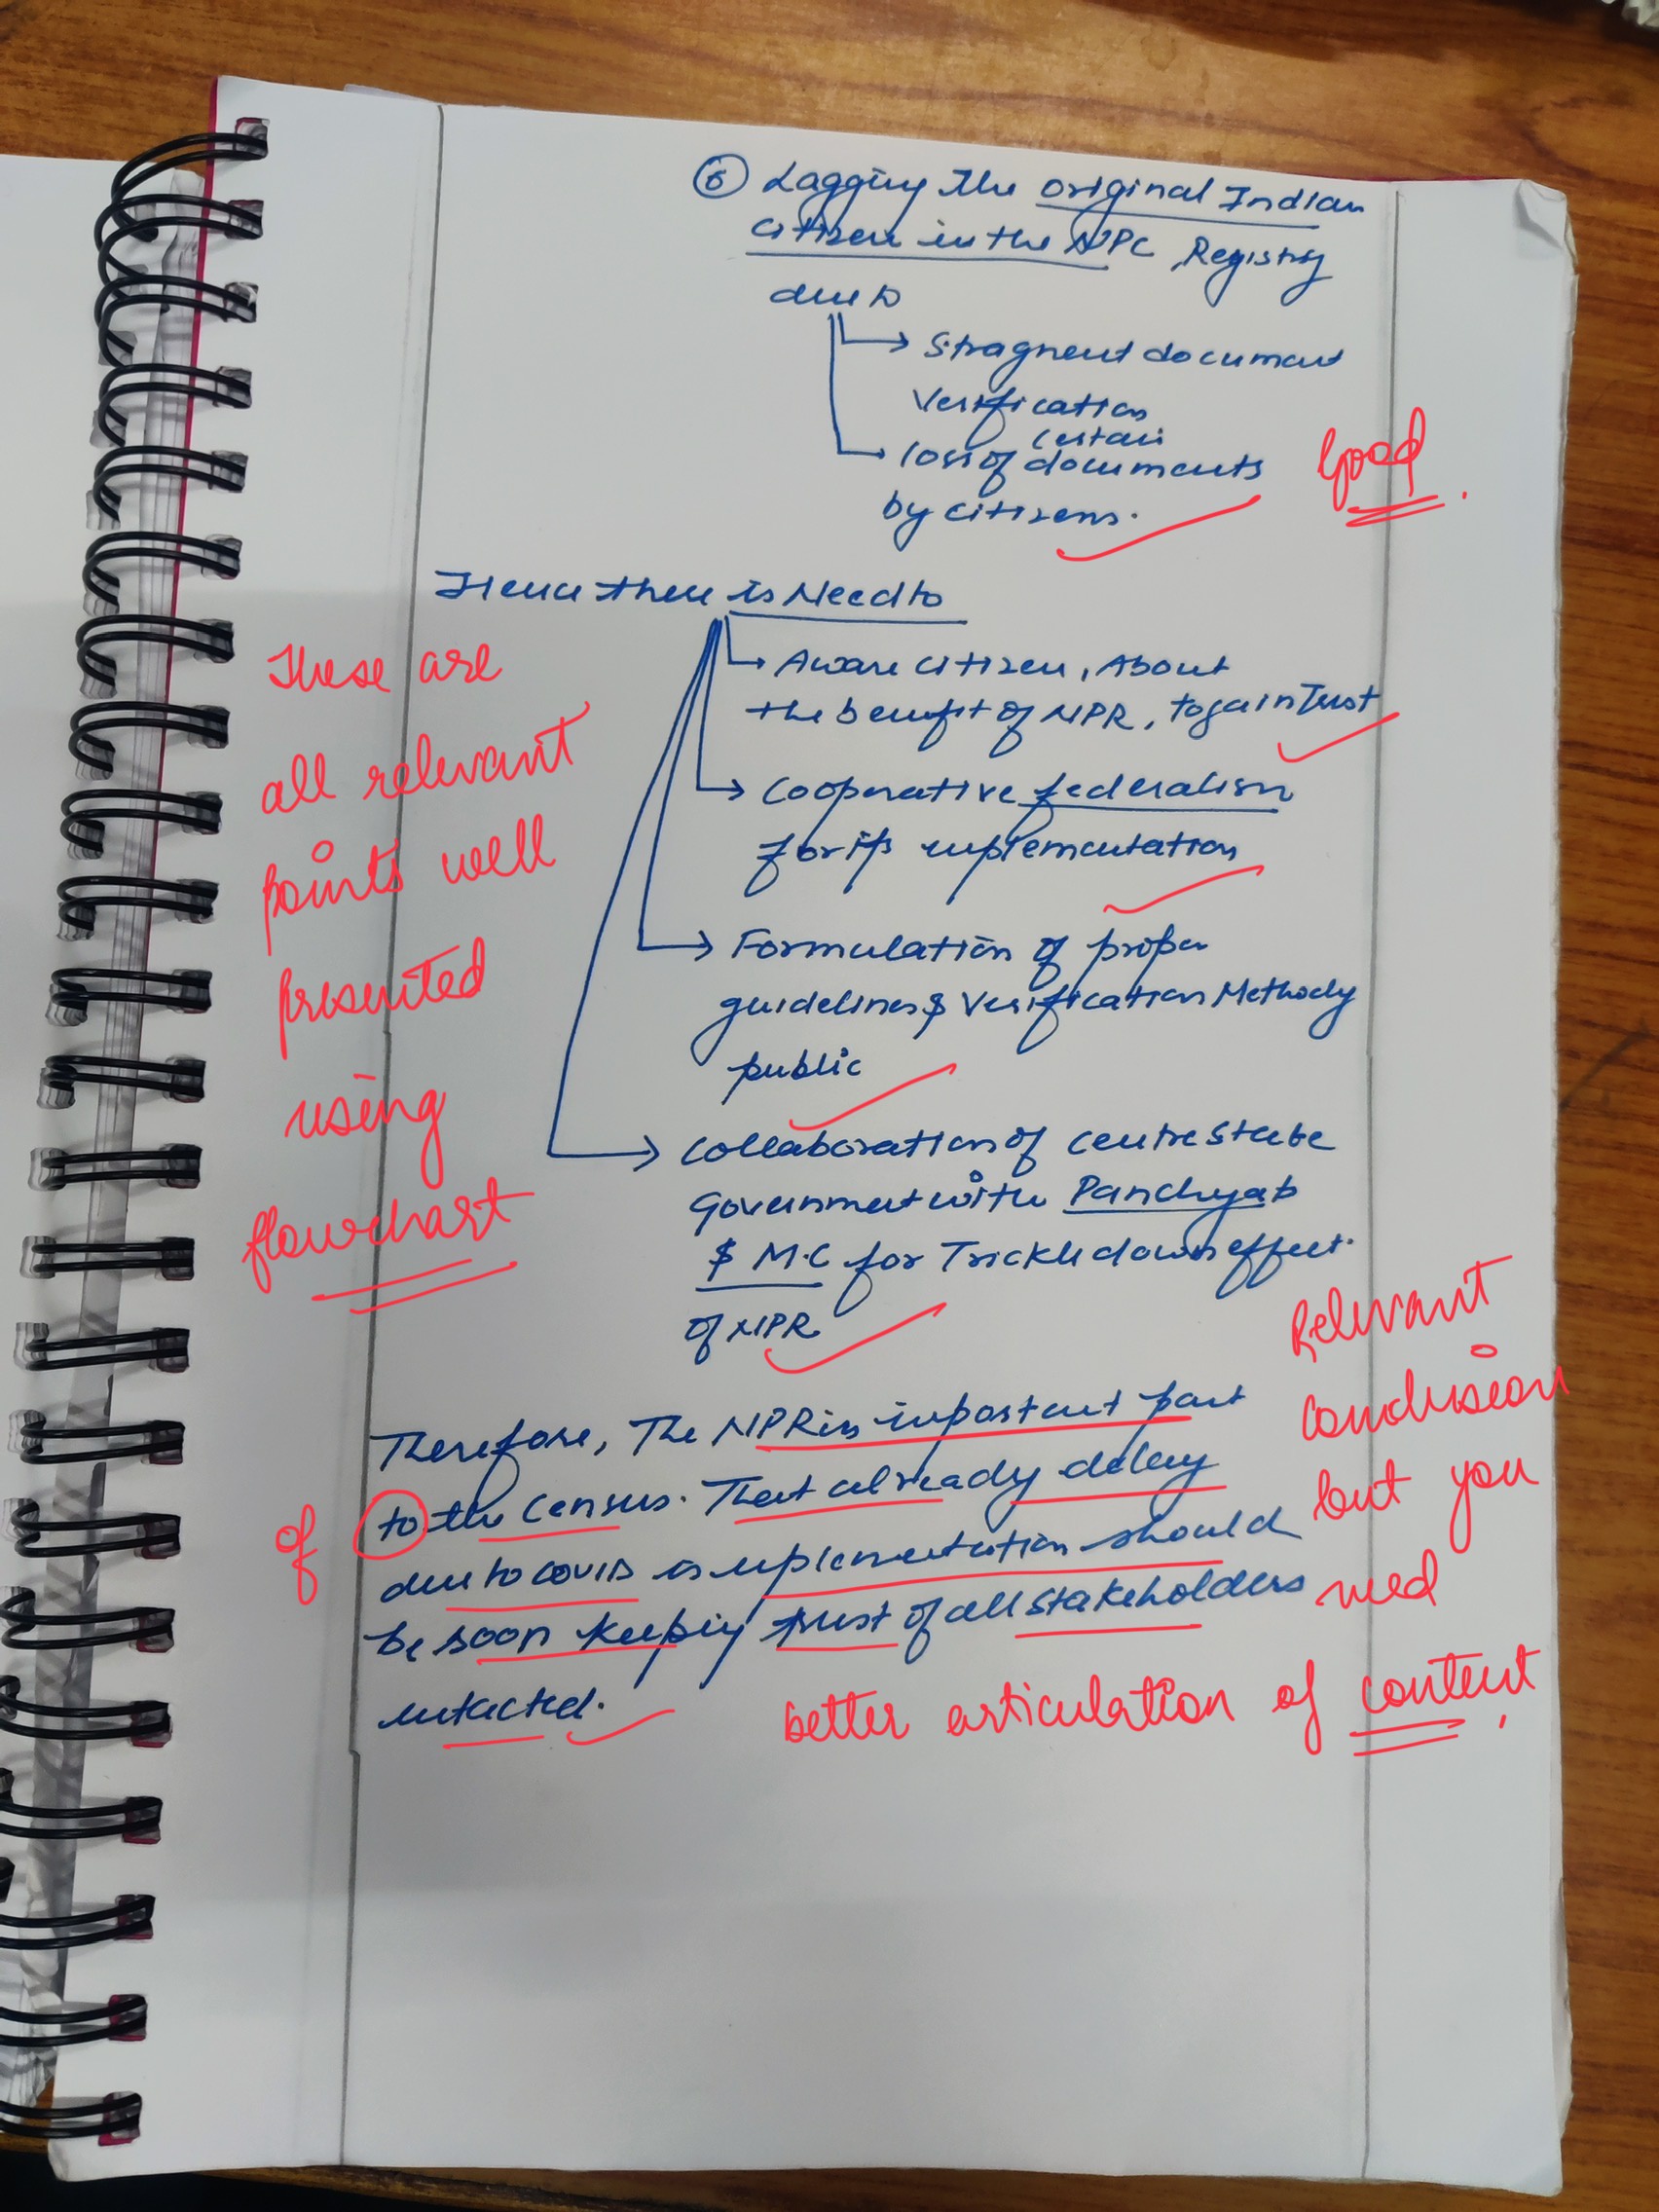 ⑥ Lagging the original Indian
citizen in the NPC, Registry
due to
→ Stragnent document
Verification
certain
→ loss of documents
by citizens.
Good.
Hence there is Need to
→ Aware citizen, About
the benefit of NPR, to gain Trust
→ Cooperative federalism
for its implementation
→ Formulation of proper
guidelines & Verification Method by
public
→ Collaboration of centre state
Government with Panchyat
& M.C for Trickle down effect.
of NPR
These are
all relevant
points well
presented
using
flowchart
Therefore, The NPR is important part
of
to the Census. That already delay
due to covid implementation should
be soon keeping trust of all stakeholders
intacted.
Relevant
conclusion
but you
need
better articulation of content.